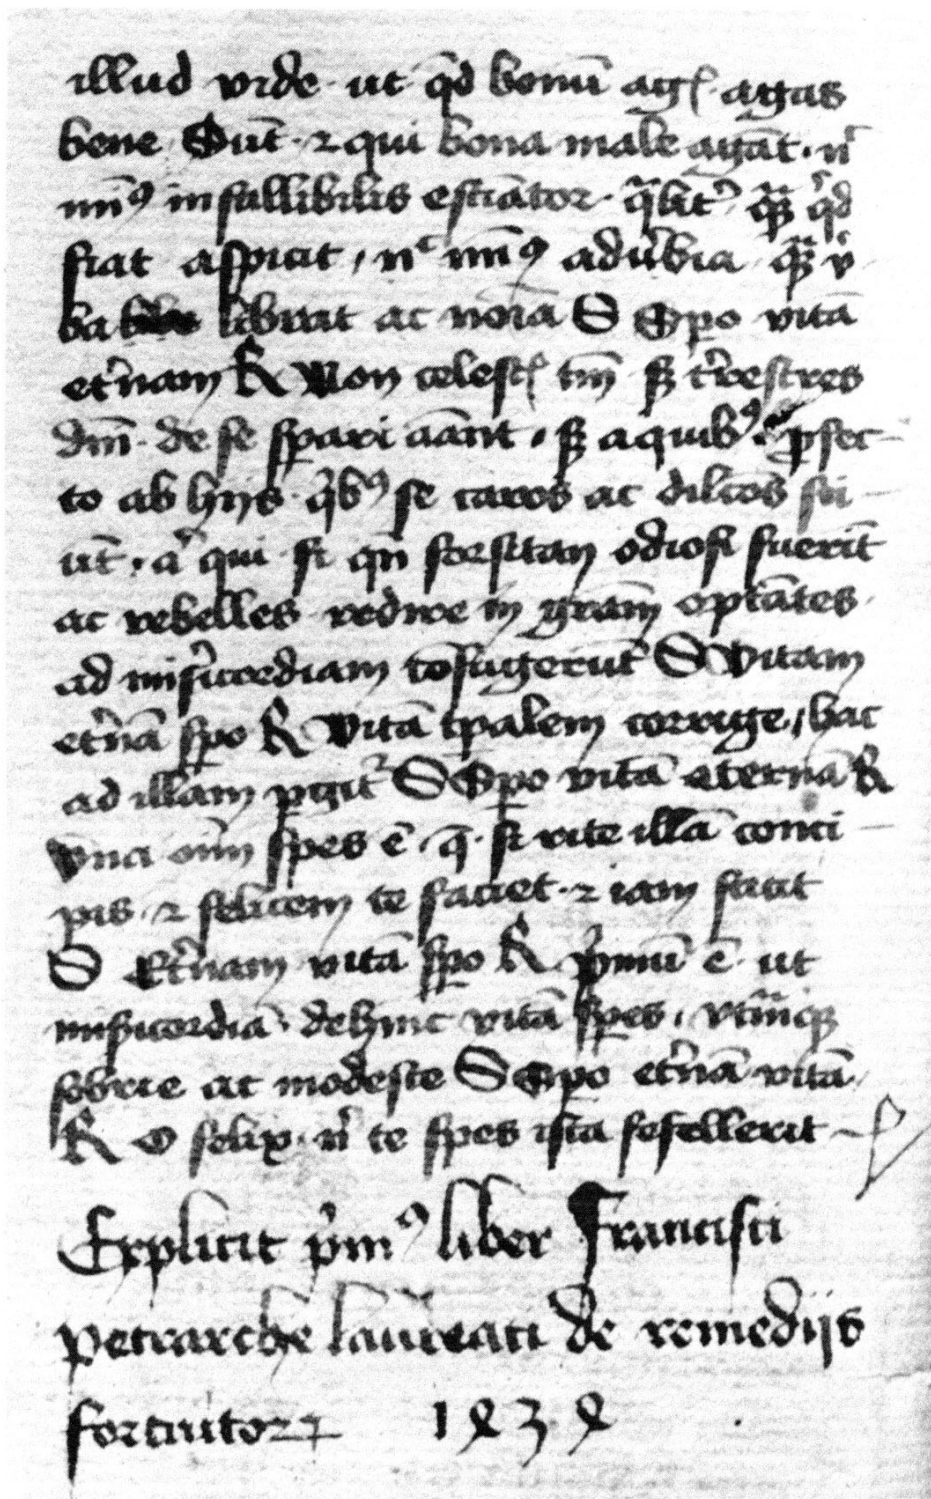 illud vide · ut qd̄ bonū agꝭ · agas
bene Sūt · ⁊ qui bona male agāt · nͥ
mīꝰ infallibilis estiātor · qͣlitͬ · qͣꝫ qͥd
fiat aspicit · nͨ mīꝰ adūbia · qͣꝫ v̾
ba librat ac noīa S Spo vitā
et̾nam R Non celestꝭ tm̄ · sꝫ t̾restres
dm̄ · de se sp̱ari aāant · sꝫ a quibꝰ · ꝓfec-
to ab hijs · qͥbꝰ se caros ac dilc̄os sci-
ūt · aͭ qui si qn̄ forsitan odiosi fuerīt
ac rebelles · redire in gr̄am optātes ·
ad mis̾icordiam cōfugerūt S Vitam
et̾nā spo R Vitā tp̄alem corrige · hac
ad illam ꝑgitͬ S Spo vitā eternā R
Vna oīm spes ē · q̄ · si rite illā conci-
pis · ⁊ felicem te faciet · ⁊ iam facit
S Et̾nam vitā spo R pͥmū ē · ut
misͥicordiā · dehinc vitā spes · vtrūqꝫ
sobrie ac modeste S Spo et̾nā vitā ·
R O felix · nͥ te spes ista fefellerit
Explicit pͥmꝰ liber Francisci
petrarche laureati de remedijs
fortuitoꝝ 1ꝝ3ꝝ